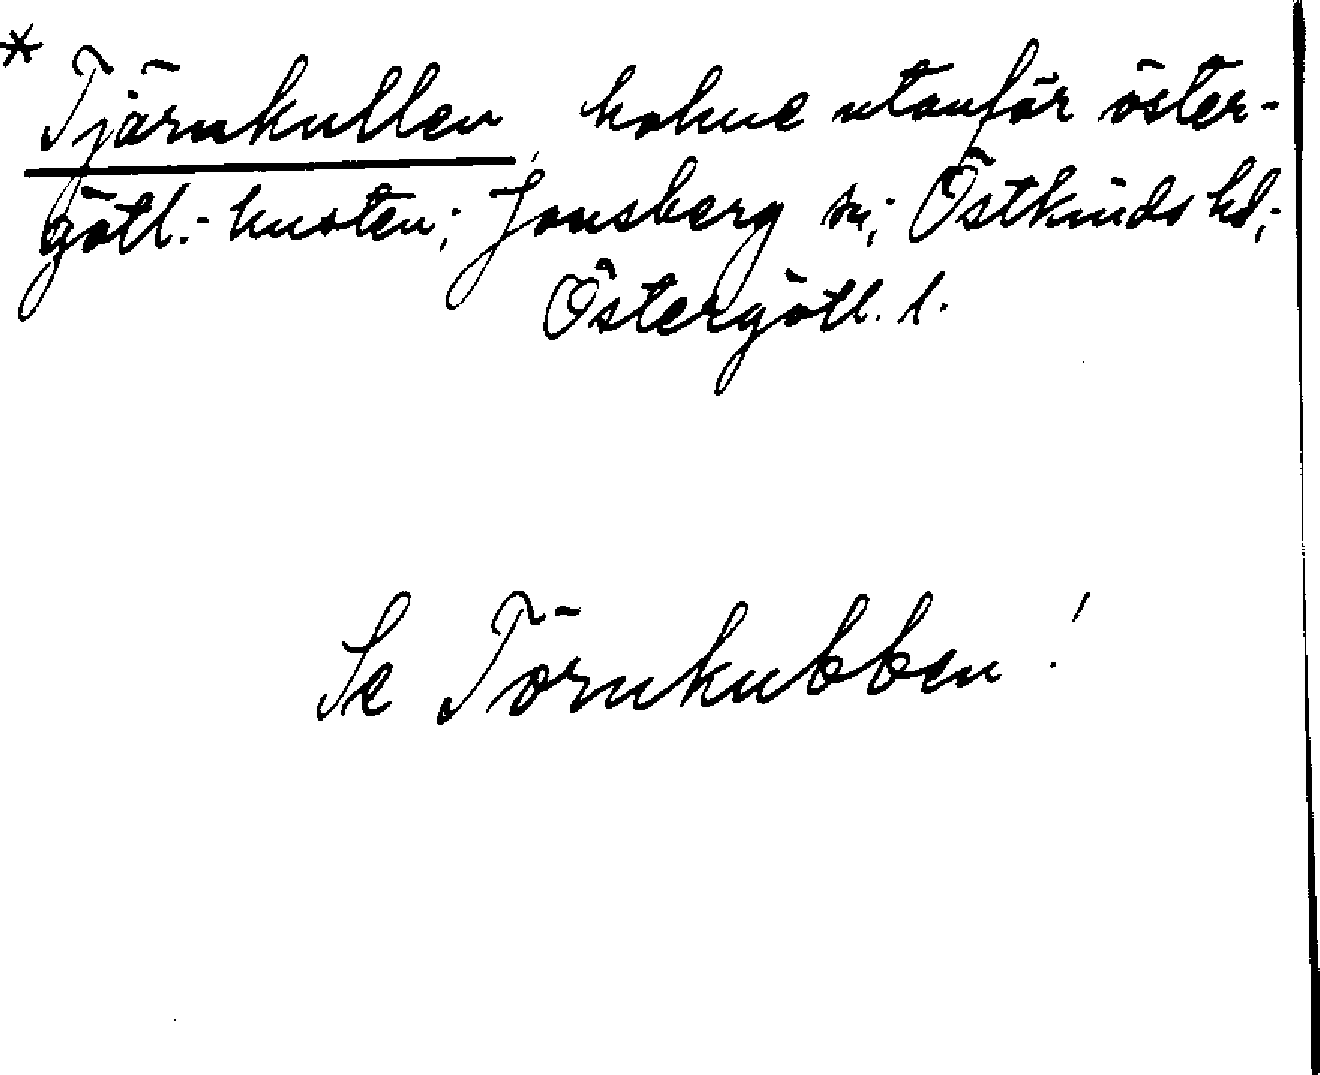 * Tjärnkullen, holme utanför öster-
götl.-kusten; Jonsberg sn; Östkinds hd;
Östergötl. l.
Se Törnkubben!